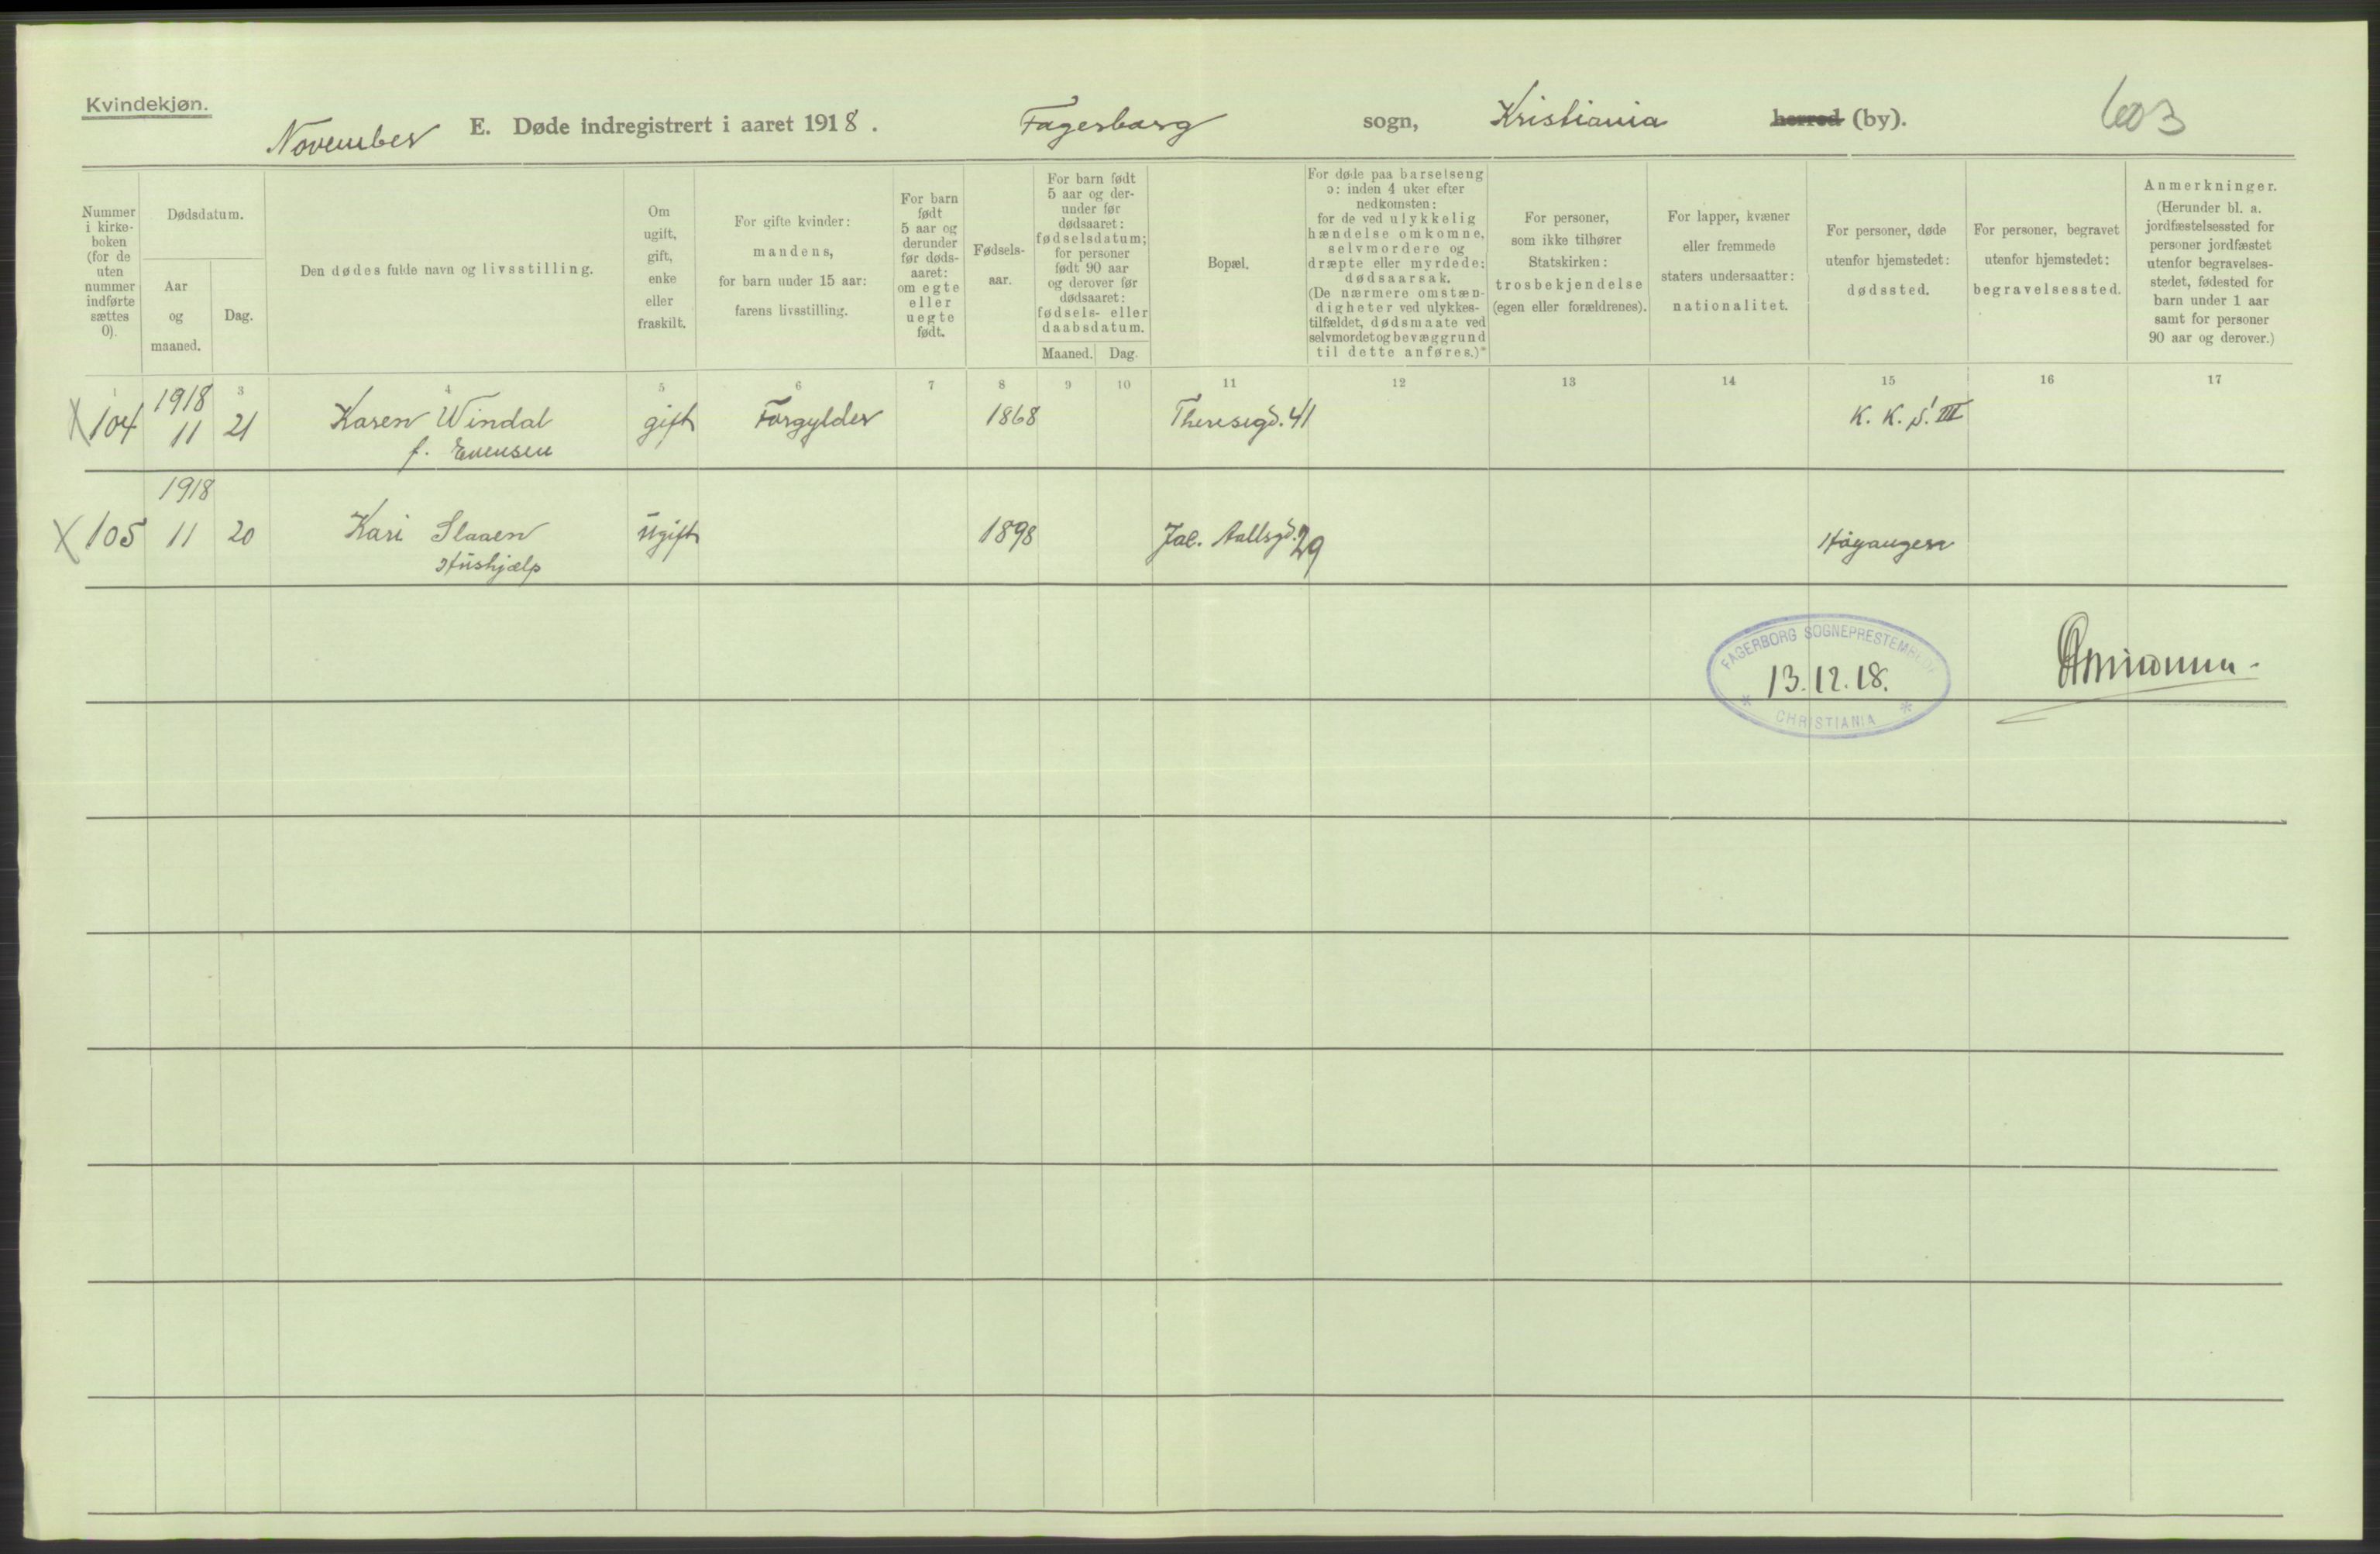 Kvindekjøn.
November E. Døde indregistrert i aaret 1918. Fagerborg sogn, Kristiania herred (by). 603
Nummer
i kirke-
boken
(for de
uten
nummer
indførte
sættes
0).
Dødsdatum.
Aar
og
maaned.
Dag.
Den dødes fulde navn og livsstilling.
Om
ugift,
gift,
enke
eller
fraskilt.
For gifte kvinder:
mandens,
for barn under 15 aar:
farens livsstilling.
For barn
født
5 aar og
derunder
før døds-
aaret:
om egte
eller
uegte
født.
Fødsels-
aar.
For barn født
5 aar og der-
under før
dødsaaret:
fødselsdatum;
for personer
født 90 aar
og derover før
dødsaaret:
fødsels- eller
daabsdatum.
Maaned. Dag.
Bopæl.
For døde paa barselseng
ɔ: inden 4 uker efter
nedkomsten;
for de ved ulykkelig
hændelse omkomne,
selvmordere og
dræpte eller myrdede:
dødsaarsak.
(De nærmere omstæn-
digheter ved ulykkes-
tilfældet, dødsmaate ved
selvmordet og bevæggrund
til dette anføres.)*
For personer,
som ikke tilhører
Statskirken:
trosbekjendelse
(egen eller forældrenes).
For lapper, kvæner
eller fremmede
staters undersaatter:
nationalitet.
For personer, døde
utenfor hjemstedet:
dødssted.
For personer, begravet
utenfor hjemstedet:
begravelsessted.
Anmerkninger.
(Herunder bl. a.
jordfæstelsessted for
personer jordfæstet
utenfor begravelses-
stedet, fødested for
barn under 1 aar
samt for personer
90 aar og derover.)
1 3 4 5 6 7 8 9 10 11 12 13 14 15 16 17
1918
X 104 11 21 Karen Windal gift Forgylder 1868 Theresegd. 41 K. K. S. III
f. Evensen
1918
X 105 11 20 Kari Slaaen Ugift 1898 Jac. Aallsgd. 29 Høyangern
Hushjælp
FAGERBORG SOGNEPRESTEMB
13.12.18.
* CHRISTIANIA *